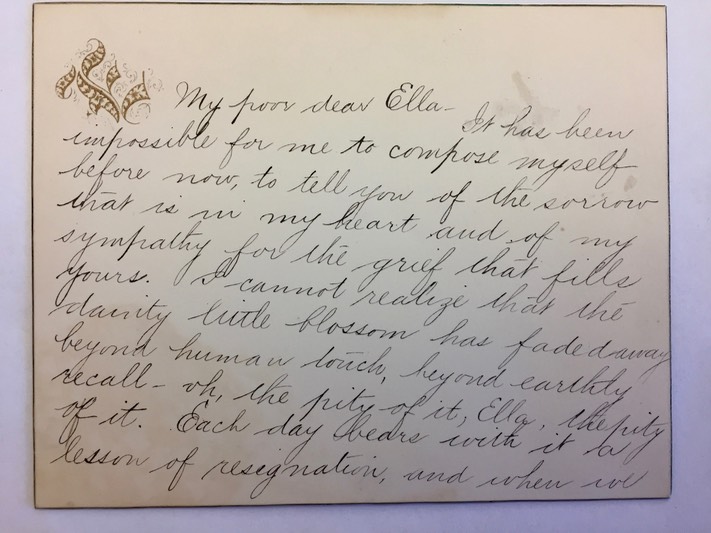 My poor dear Ella—
It has been
impossible for me to compose myself
before now, to tell you of the sorrow
that is in my heart and of my
sympathy for the grief that fills
yours. I cannot realize that the
dainty little blossom has faded away
beyond human touch, beyond earthly
recall— oh, the pity of it, Ella, the pity
of it. Each day bears with it a
lesson of resignation, and when we